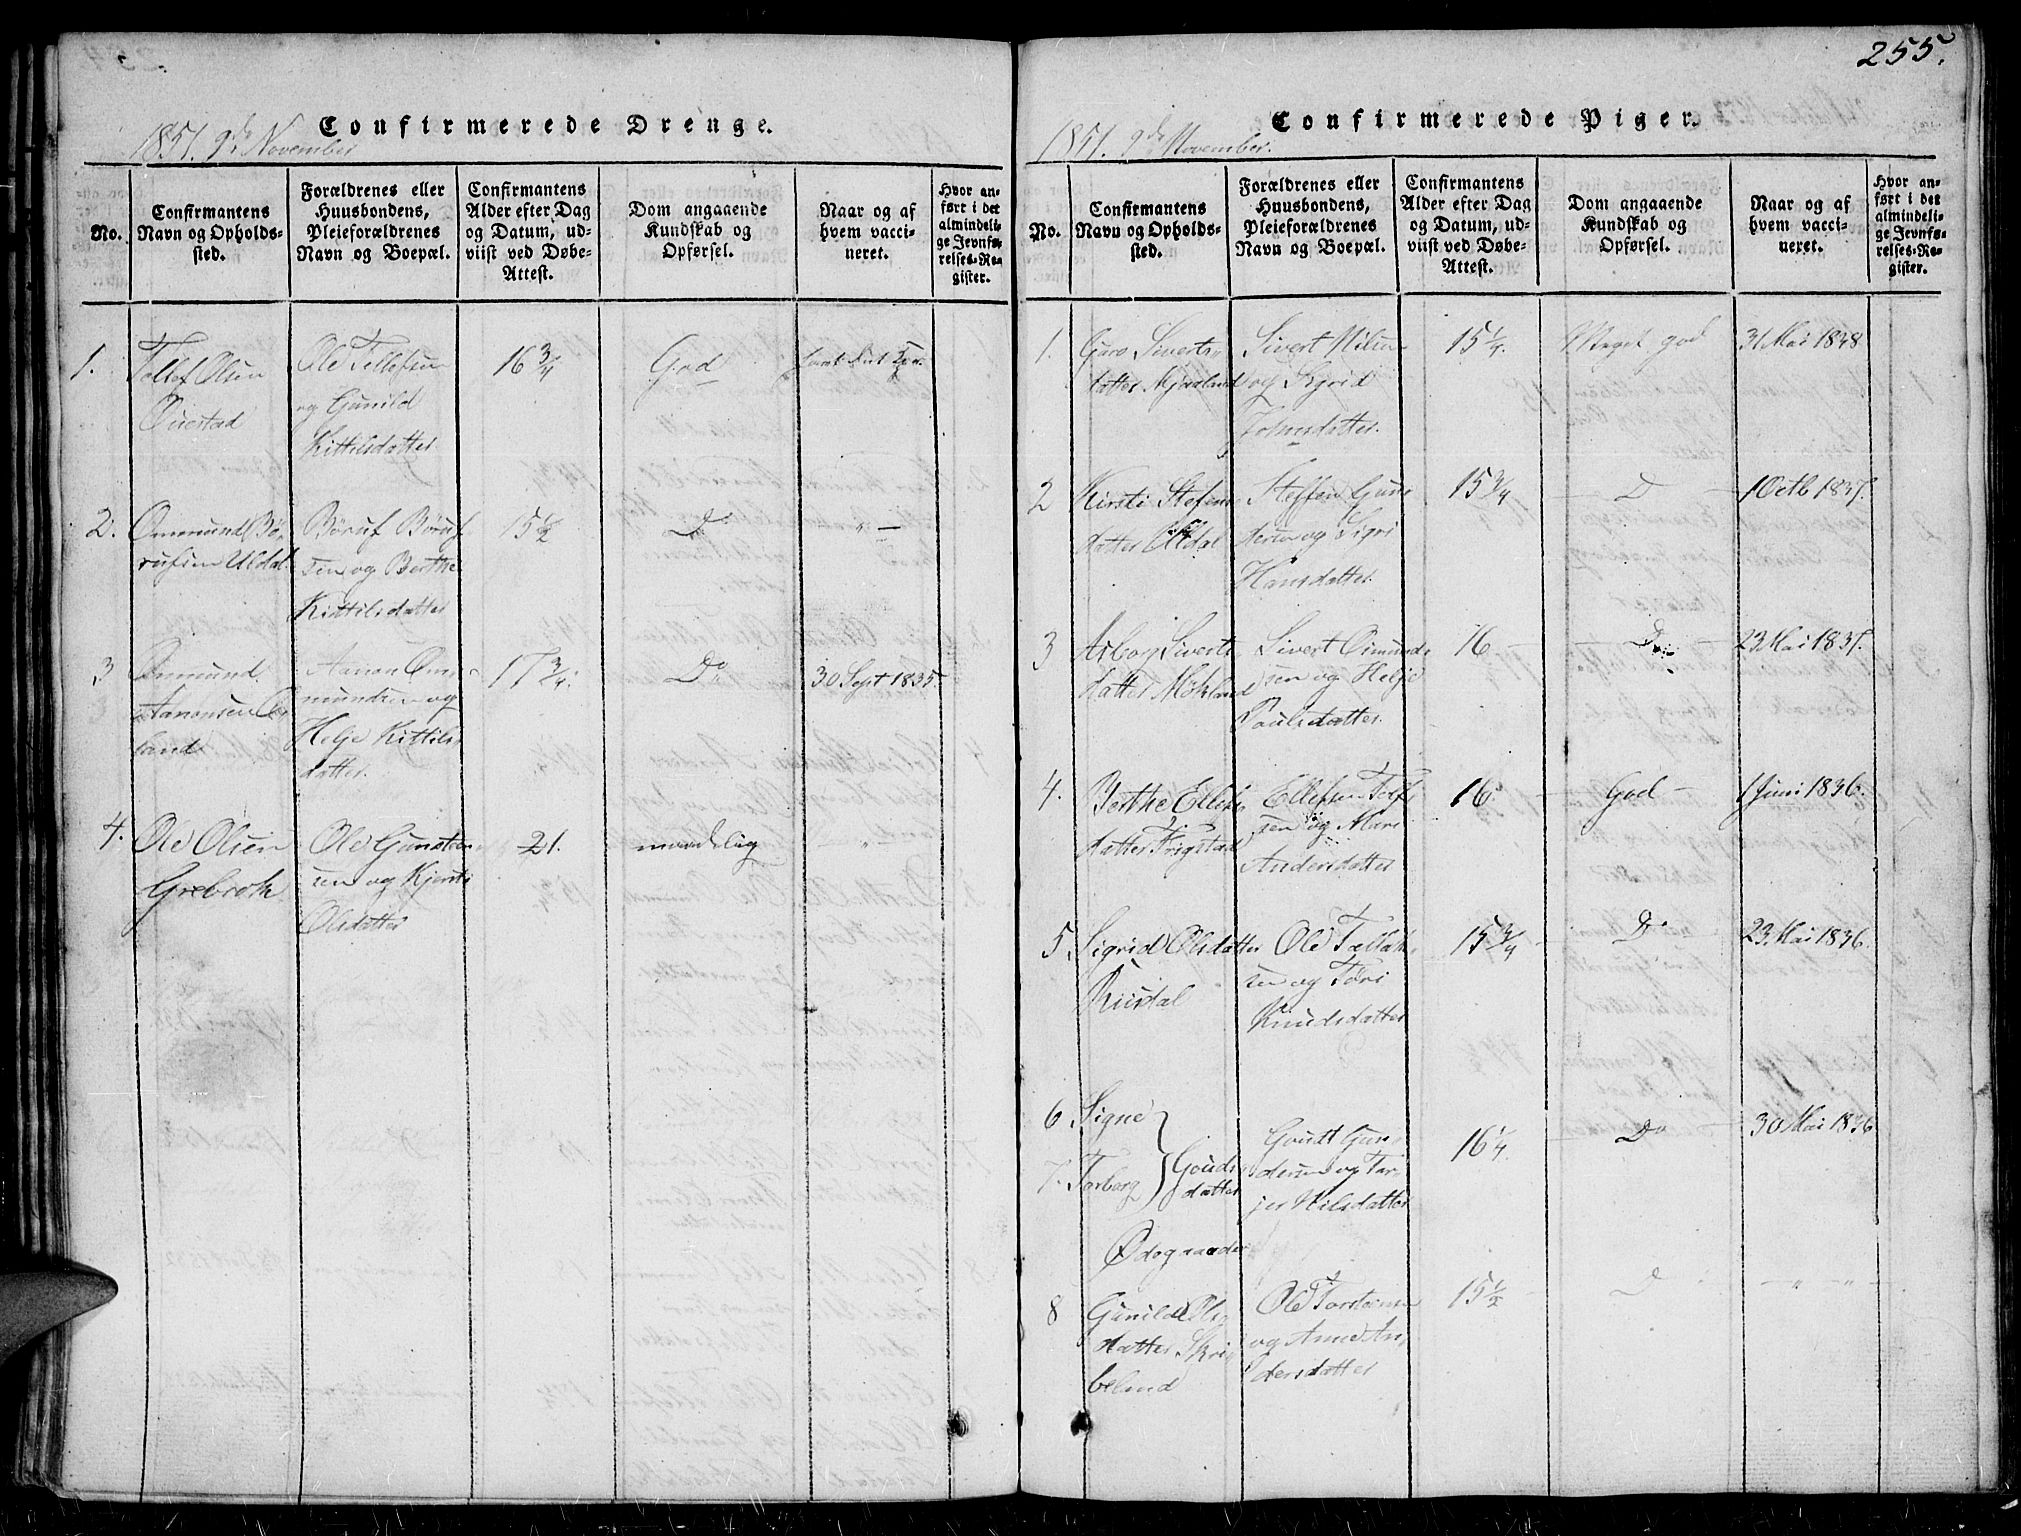 255.
Confirmerede Drenge.
1851. 9de November
No.
Confirmantens
Navn og Opholds-
sted.
Forældrenes eller
Huusbondens,
Pleieforældrenes
Navn og Boepæl.
Confirmantens
Alder efter Dag
og Datum, ud-
viist ved Døbe-
Attest.
Dom angaaende
Kundskab og
Opførsel.
Naar og af
hvem vacci-
neret.
Hvor an-
ført i det
almindeli-
ge Jevnfø-
relses-Re-
gister.
1.
Tellef Olsen
Ole Tellefsen
og Gunild
Kittilsdatter
16 3/4
God
2.
Ommund Bø-
rufsen Uldal
Børuf Børuf-
sen og Berthe
Kittilsdatter
15 1/2
Do
"
3
Ommund
Aanonsen
land
Aanon Om-
mundsen og
Helje Kittils-
datter.
17 3/4.
Do
30 Sept 1835.
4.
Ole Olsen
Grebrok
Ole Gunsten-
sen og Kjersti
Olsdatter
21.
maadelig
"
Confirmerede Piger.
1851. 9de November.
No.
Confirmantens
Navn og Opholds-
sted.
Forældrenes eller
Huusbondens,
Pleieforældrenes
Navn og Boepæl.
Confirmantens
Alder efter Dag
og Datum, ud-
viist ved Døbe-
Attest.
Dom angaaende
Kundskab og
Opførsel.
Naar og af
hvem vacci-
neret.
Hvor an-
ført i det
almindeli-
ge Jevnfø-
relses-Re-
gister.
1.
Guro Siverts-
datter
Sivert Nilsen
og Sigrid
Johnsdatter.
15 1/4.
Meget god
31 Mai 1838
2
Kirsti Stefens-
datter Uldal
Steffen Gun-
dersen og Sigri
Hansdatter.
15 3/4
D
1 Octb 1837.
3
Asborg Siverts-
datter Mokland
Sivert Osmunds-
sen og Helje
Paulsdatter.
16
Do
23 Mai 1837.
4.
Berthe Ellefs-
datter Frigstad
Ellef Tolf-
sen og Mari
Andersdatter
16
God
1 Juni 1836.
5.
Sigrid Olsdatter
Risdal
Ole Tellef-
sen og Tøri
Knudsdatter
15 3/4
Do
23 Mai 1836.
6
Signe
7.
Torborg
Gouds-
datter
Ødegaarden
Goudt Gun-
dersen og Tar-
jer Nilsdatter
16 1/4
Do
30 Mai 1836
8
Gunild Ols-
datter Skri-
beland
Ole Torstensen
og Anne An-
dersdatter
15 1/2
D
" "